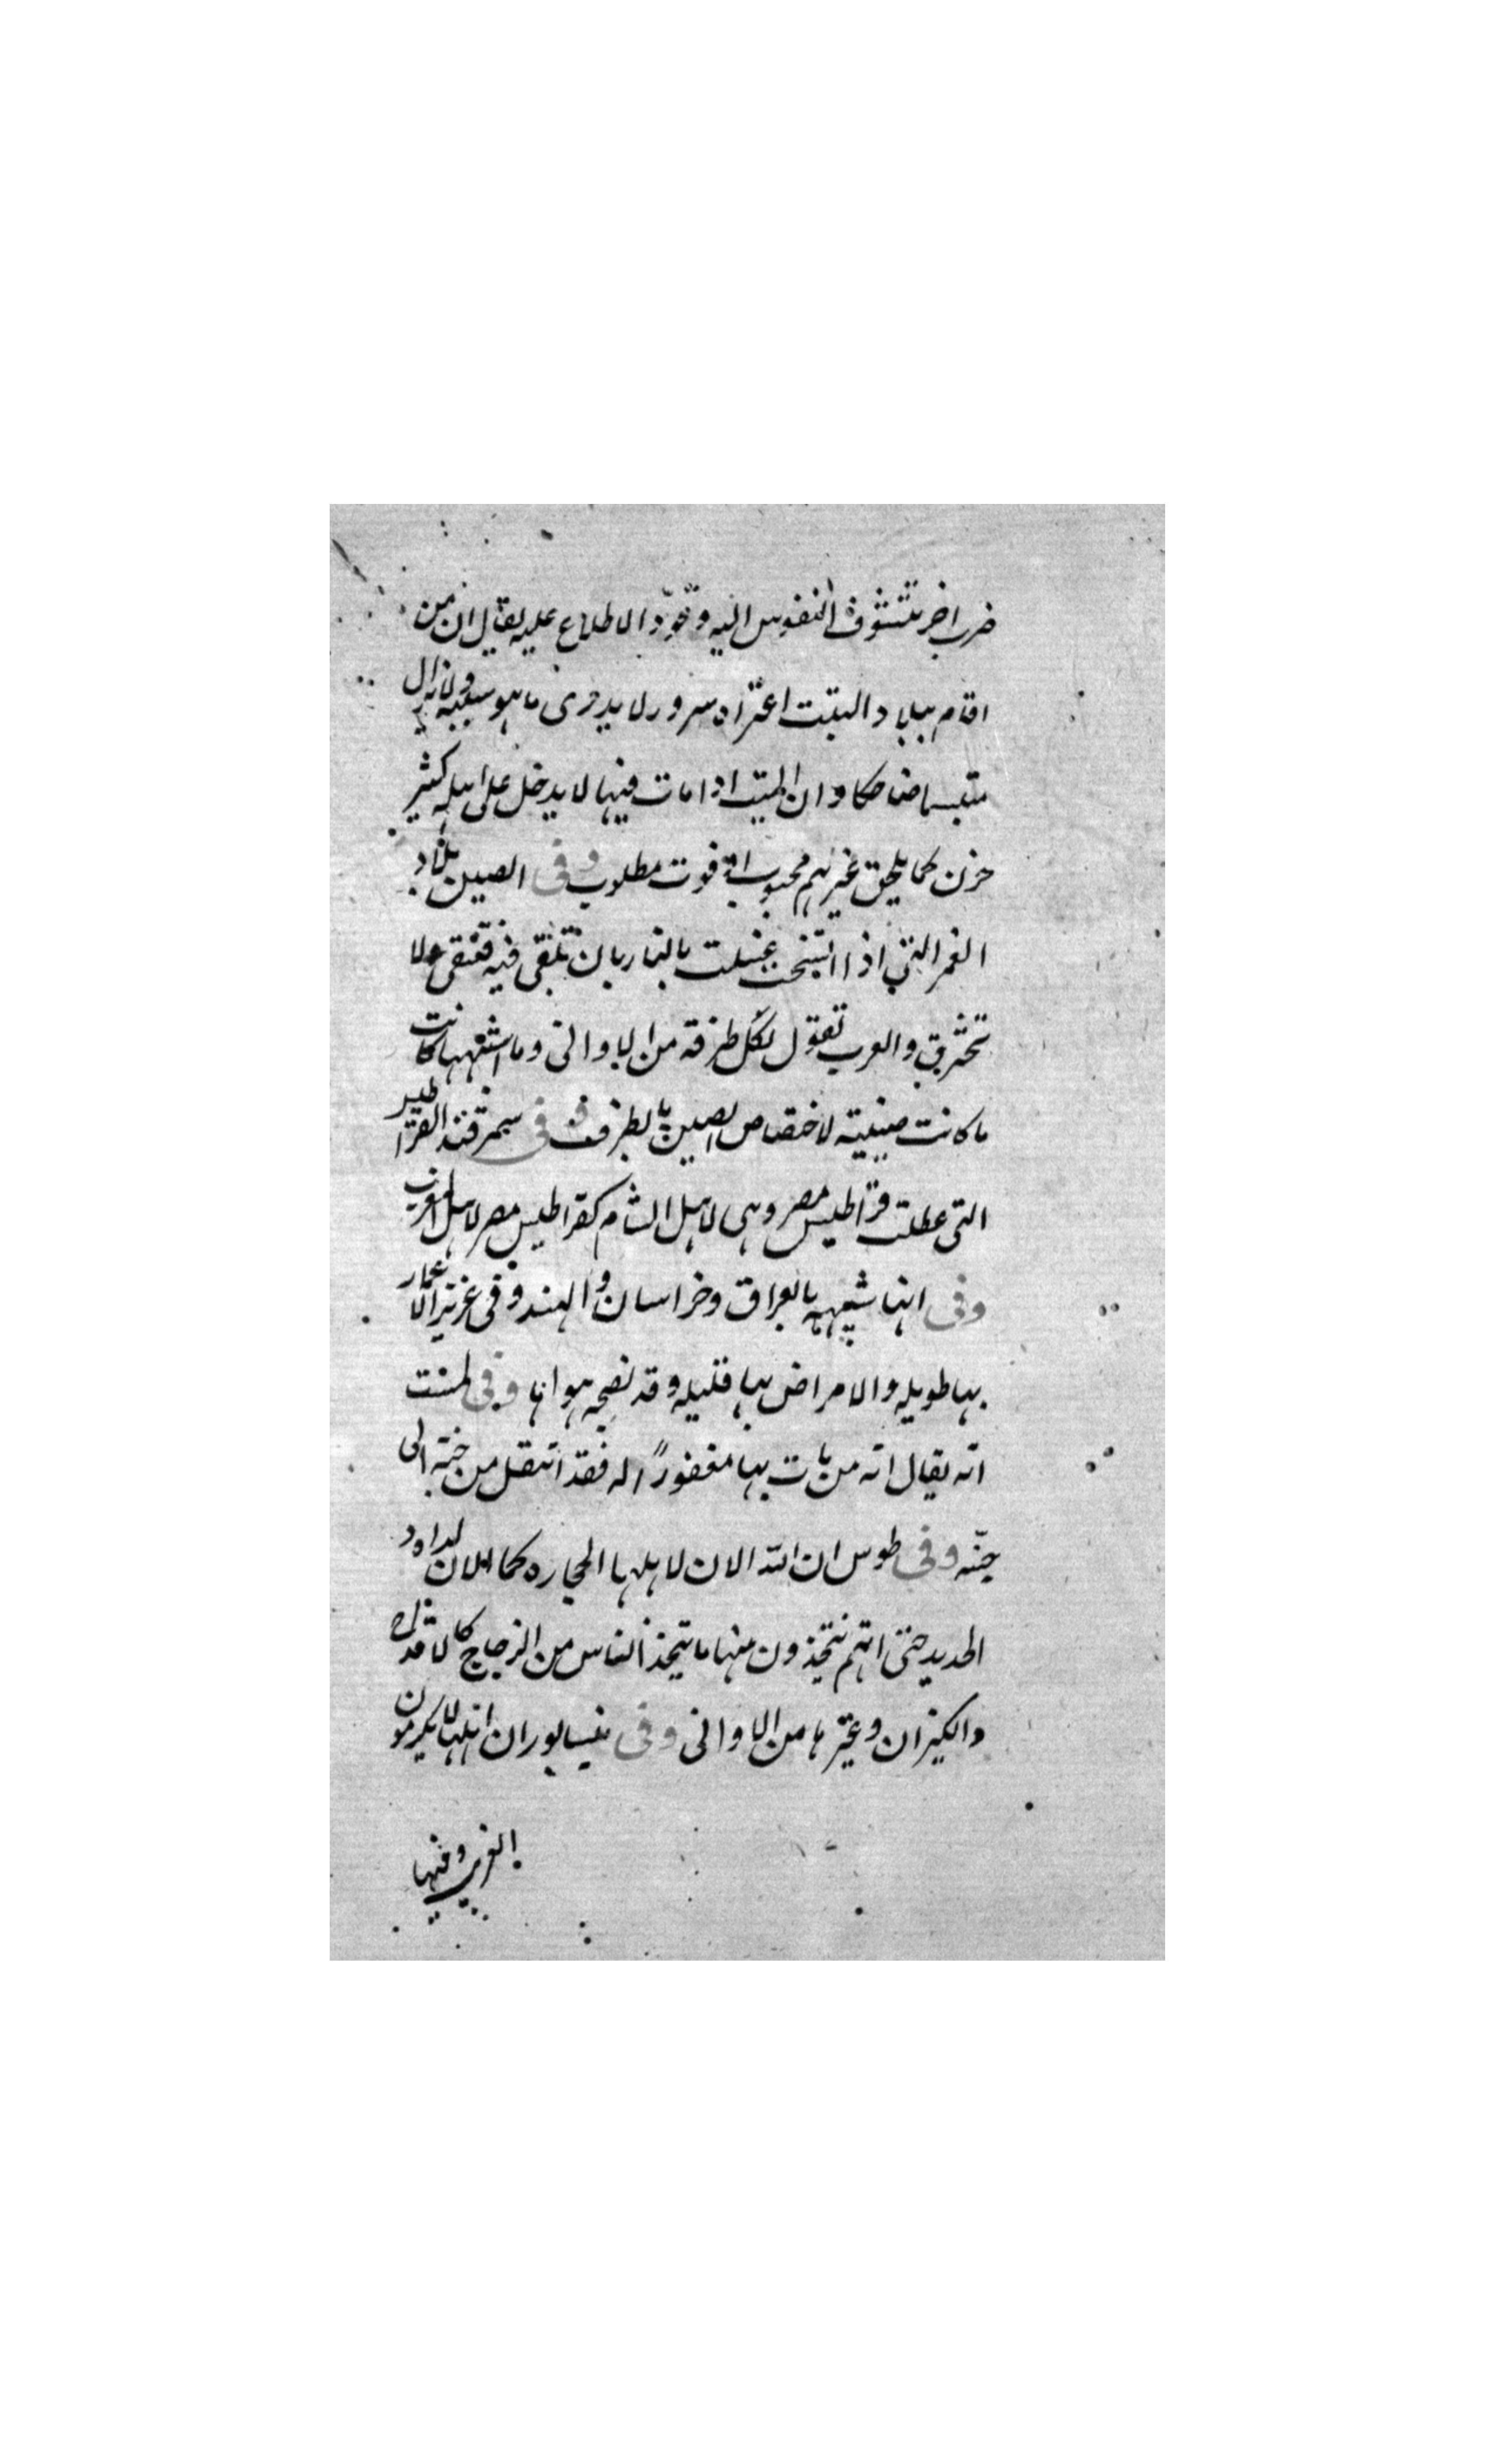 ضرب اخر تتشوف النفوس اليه وتودّ الاطلاع عليه يقال ان من
اقام ببلاد التبت اعتراه سرور لا يدرى ما هو سببه ولا يزال
متبسما ضاحكا وان الميت اذا مات فيها لا يدخل على اهله كثير
حزن كما يلحق غيرهم محبوب او فوت مطلوب وفى الصين بلاد
الغمر التي اذا اتسخت غسلت بالنار بان تلقى فيه فتنقى ولا
تحترق والعرب تقول لكل طرفة من الاوانى وما اشبهها كانت
ما كانت صينية لاختصاص الصين بالطرف فى سمرقند القراطيس
التى عطلت قراطيس مصر وهى لاهل الشام كقراطيس مصر لاهل المغرب
وفى انها شبيهة بالعراق وخراسان والهند وفى غزنة الاعمار
بها طويله والامراض بها قليله وقد نصح هواها وفى
انه يقال انه من مات بها مغفورًا له فقد انتقل من جنة الى
جنّه وفى طوس ان الله الان لاهلها الحجاره كما الان لداود
الحديد حتى انهم يتخذون منها ما يتخذ الناس من الزجاج كالاقداح
والكيزان وغيرها من الاوانى وفى نيسابور ان اهلها لا يكرمون
الغريب وفيها